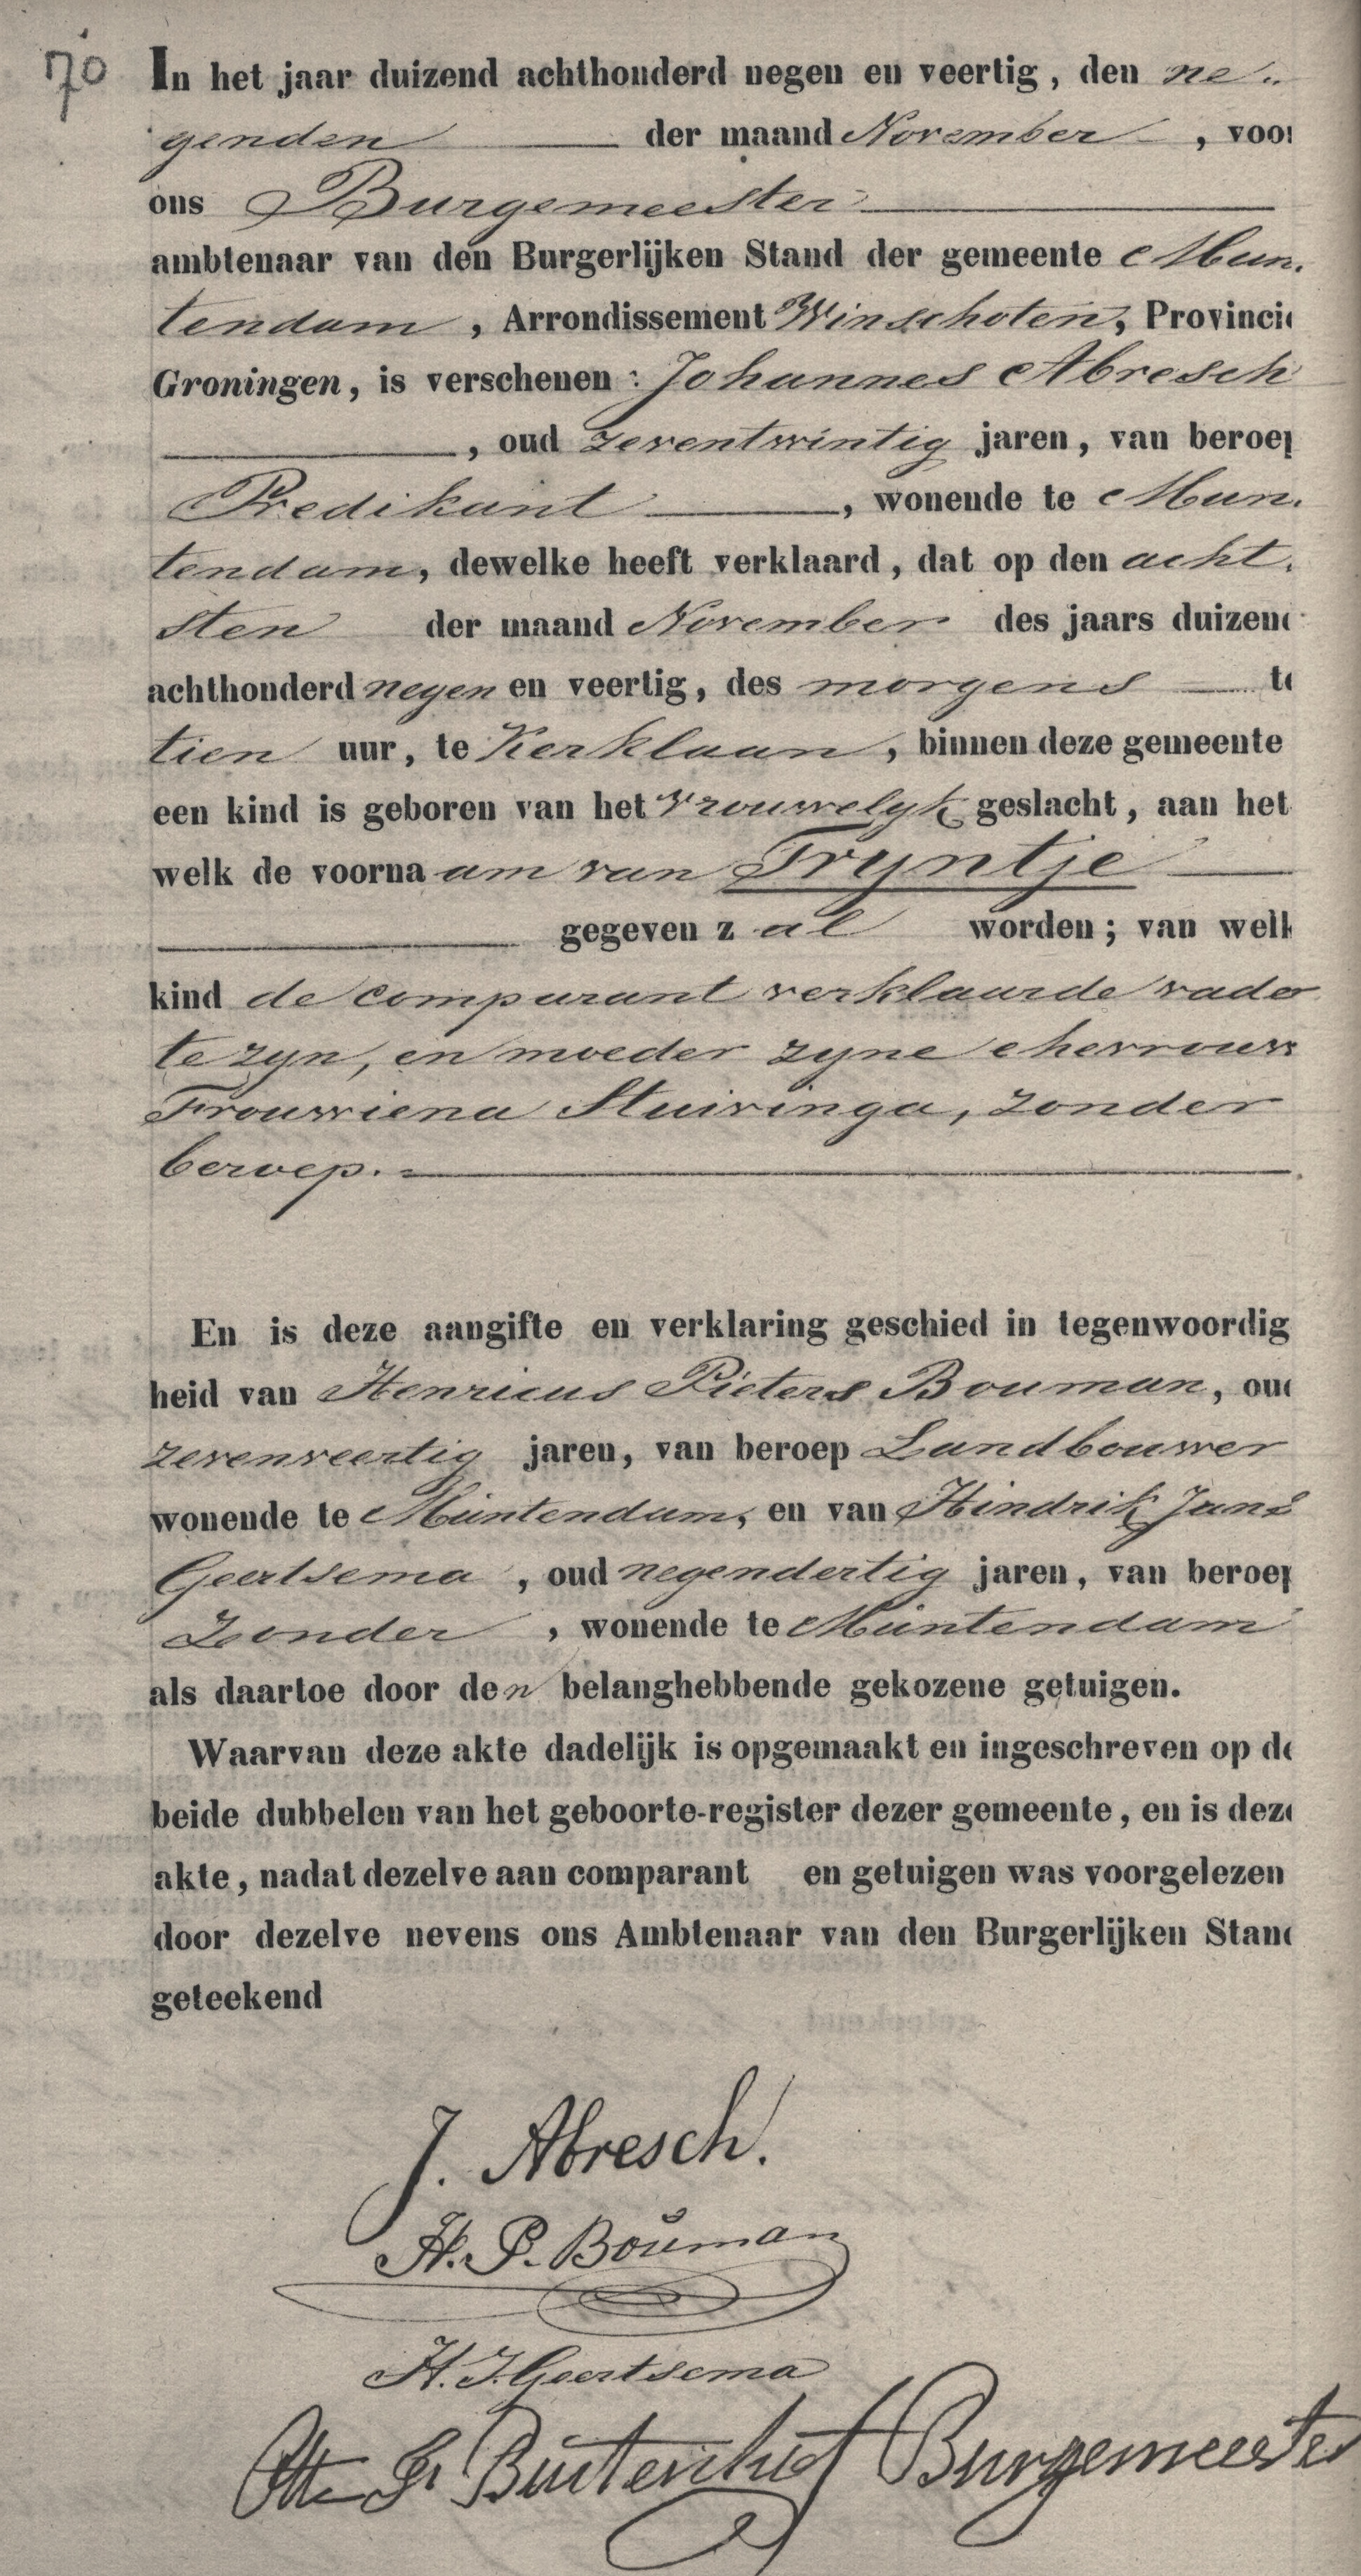 70
In het jaar duizend achthonderd negen en veertig, den ne..
genden der maand November, voor
ons Burgemeester
ambtenaar van den Burgerlijken Stand der gemeente Mun.
tendam, Arrondissement Winschoten, Provincie
Groningen, is verschenen: Johannes Abresch
, oud zeventwintig jaren, van beroep
Predikant, wonende te Mun.
tendam, dewelke heeft verklaard, dat op den acht.
sten der maand November des jaars duizend
achthonderd negen en veertig, des morgens te
tien uur, te Kerklaan, binnen deze gemeente
een kind is geboren van het vrouwelyk geslacht, aan het
welk de voornaam van Tryntje
gegeven zal worden; van welk
kind de comparant verklaarde vader
te zyn, en moeder zyne ehevrouw
Frouwiena Stuivinga, zonder
beroep.
En is deze aangifte en verklaring geschied in tegenwoordig
heid van Henricus Pieters Bouman, oud
zevenveertig jaren, van beroep Landbouwer
wonende te Muntendam, en van Hindrik Jans
Geertsema, oud negendertig jaren, van beroep
Zonder, wonende te Muntendam
als daartoe door den belanghebbende gekozene getuigen.
Waarvan deze akte dadelijk is opgemaakt en ingeschreven op de
beide dubbelen van het geboorte-register dezer gemeente, en is deze
akte, nadat dezelve aan comparant en getuigen was voorgelezen
door dezelve nevens ons Ambtenaar van den Burgerlijken Stand
geteekend
J. Abresch.
H. P. Bouman
H. J. Geertsema
Burgemeester